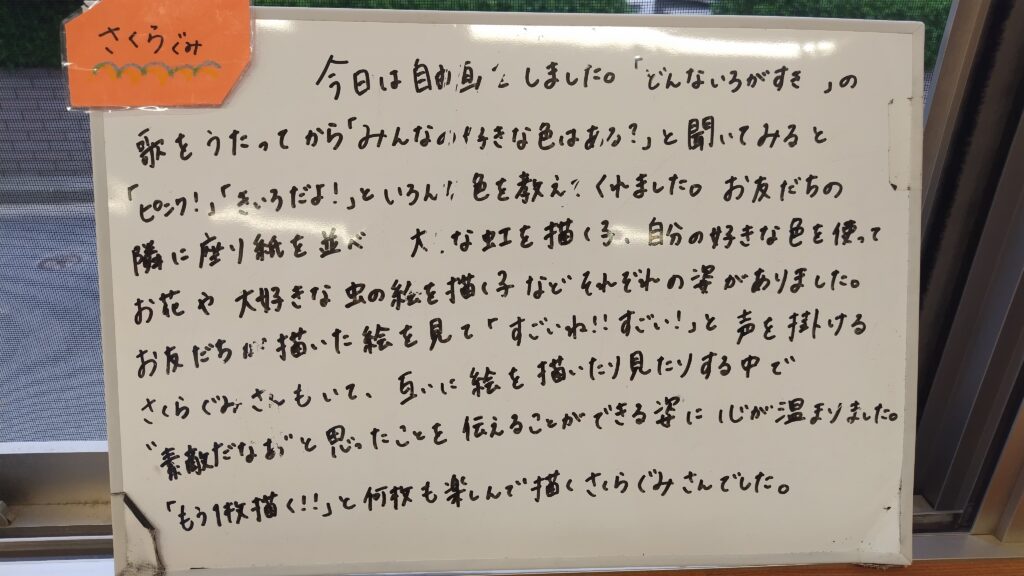 さくらぐみ
今日は自由画をしました。「どんないろがすき」の
歌をうたってから「みんなの好きな色はある?」と聞いてみると
「ピンク!」「きいろだよ!」といろんな色を教えてくれました。お友だちの
隣に座り紙を並べ 大きな虹を描く子、自分の好きな色を使って
お花や大好きな虫の絵を描く子などそれぞれの姿がありました。
お友だちが描いた絵を見て「すごいね!!すごい!」と声を掛ける
さくらぐみさんもいて、互いに絵を描いたり見たりする中で
"素敵だなぁ"と思ったことを伝えることができる姿に心が温まりました。
「もう1枚描く!!」と何枚も楽しんで描くさくらぐみさんでした。